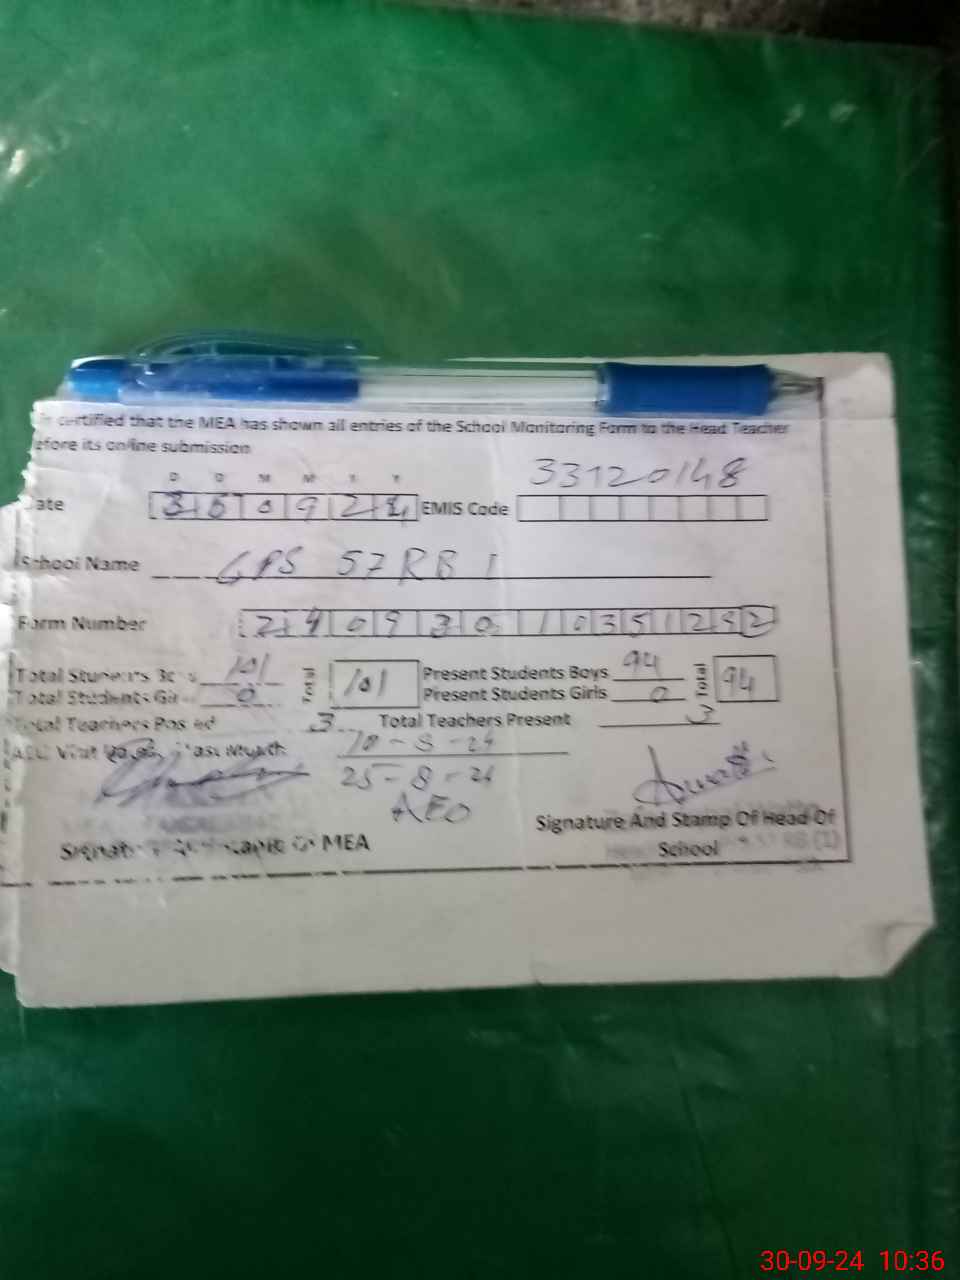 certified that the MEA has shown all entries of the School Monitoring Form to the Head Teacher
efore its online submission
D D M M Y Y
33120148
ate 300924 EMIS Code
School Name GPS 57 RB 1
Form Number 240930
Total Students 101 101 Present Students Boys 94 94
Total Students 0 Present Students Girls 0
Total Teachers Posted 3 Total Teachers Present 3
Visit Last Month 10-8-24
25-8-24
AEO
Signature And Stamp Of Head Of
School
MEA
30-09-24 10:36